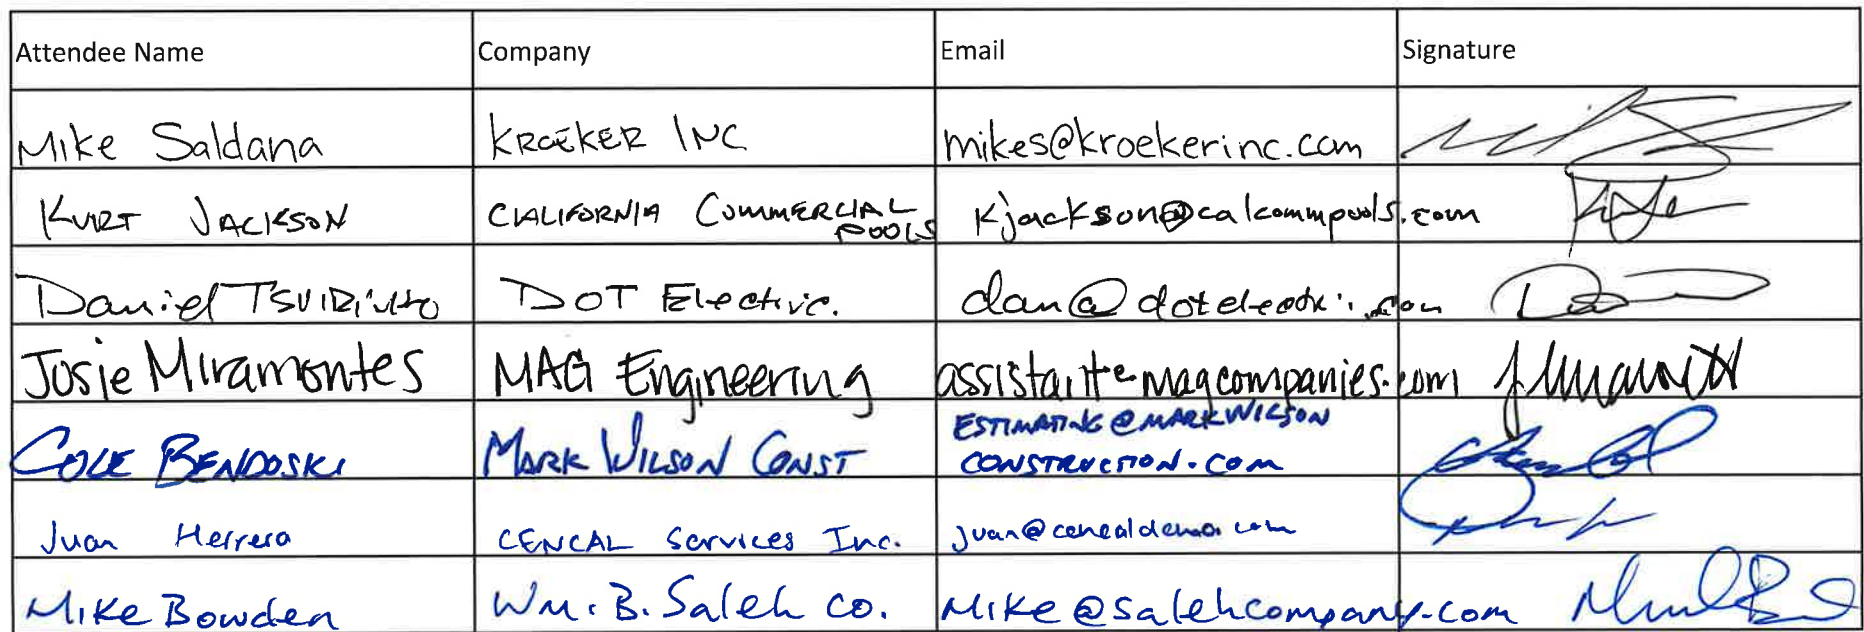 Attendee Name Company Email Signature
Mike Saldana KROEKER INC mikes@kroekerinc.com
KURT JACKSON CALIFORNIA COMMERCIAL POOLS kjackson@calcommpools.com
Daniel DOT Electric.
Josie Miramontes MAG Engineering assistant@magcompanies.com
COLE BENDOSKI MARK WILSON CONST ESTIMATING@MARKWILSON
CONSTRUCTION.COM
Juan Herrera CENCAL Services Inc. juan@cencaldemo.com
Mike Bowden Wm. B. Saleh co. Mike@salehcompany.com